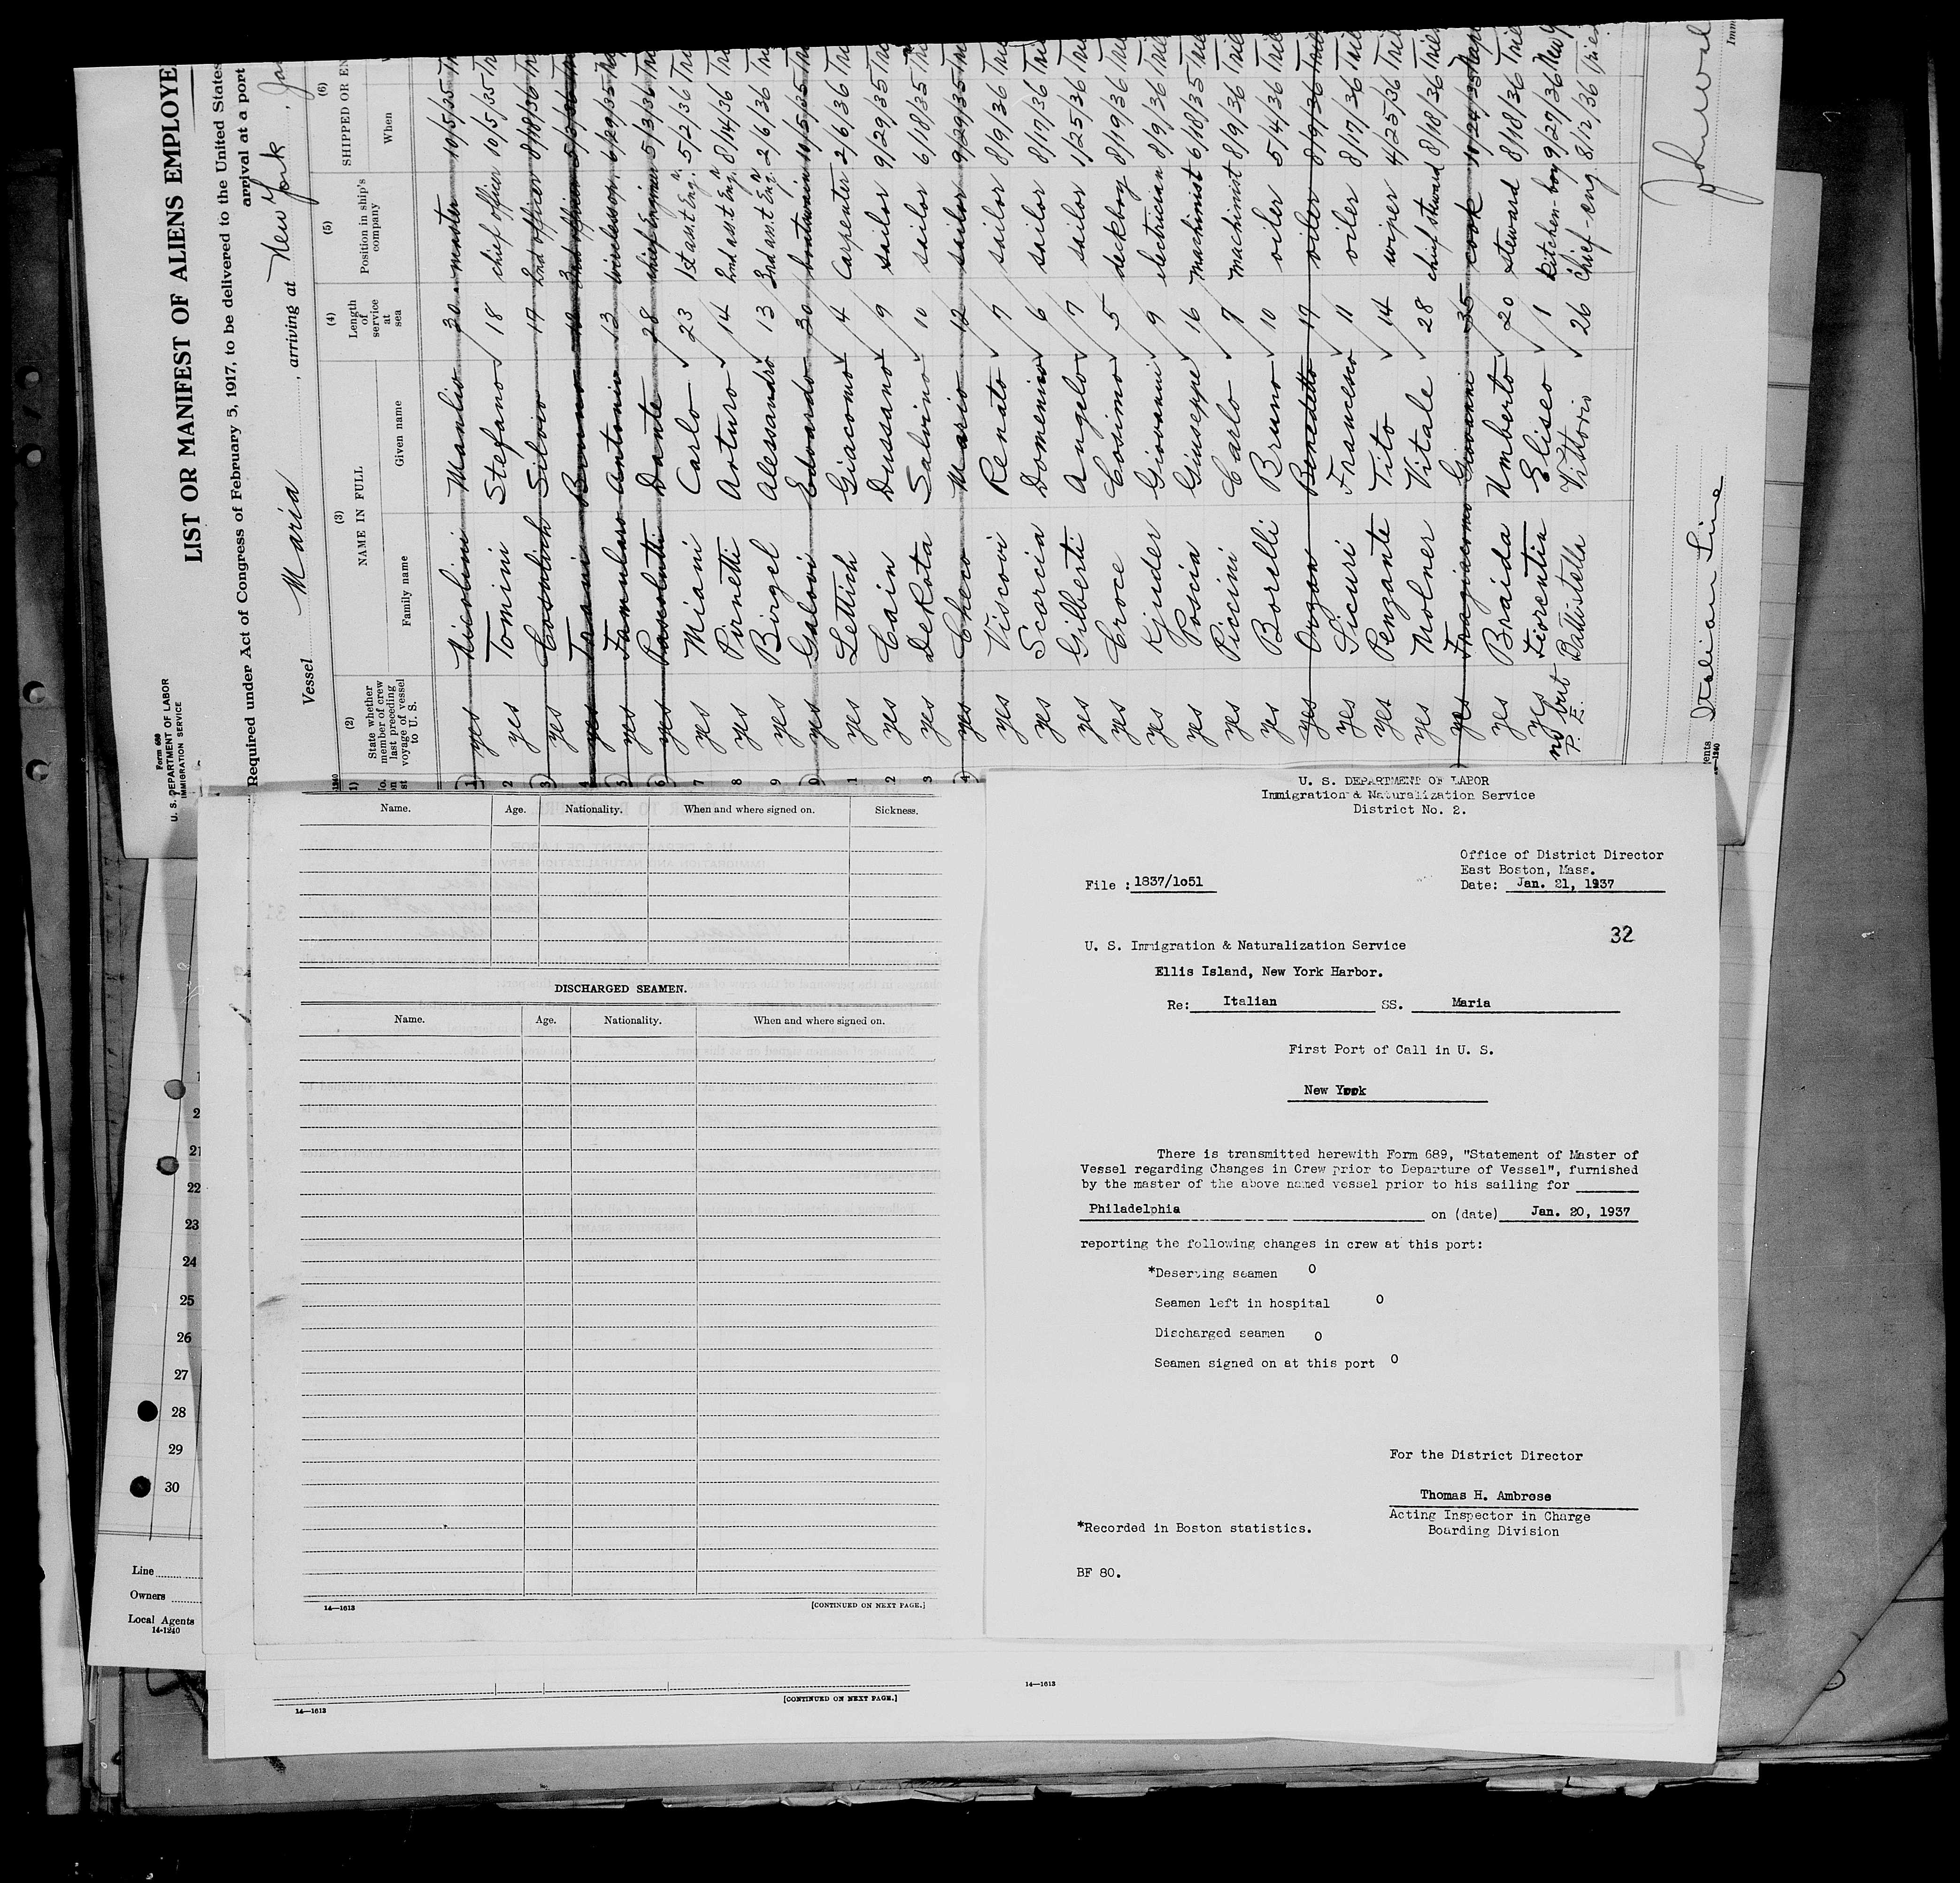 Form 680
U. S. DEPARTMENT OF LABOR
IMMIGRATION SERVICE
LIST OR MANIFEST OF ALIENS EMPLOYE
Required under Act of Congress of February 5, 1917, to be delivered to the United States
arrival at a port
Vessel Maria, arriving at New York, Jan
(2) (3) (4) (5) (6)
State whether member of crew last preceding voyage of vessel to U. S.
NAME IN FULL
Family name Given name
Length of service at sea
Position in ship's company
SHIPPED OR EN
When
1 yes Nicolini Manlio 30 master 10/5/35
2 yes Tomini Stefano 18 chief officer 10/5/35
3 yes Cosulich Silvio 17 2nd officer 8/18/36
4 yes Bruno 3rd officer 5/3/36
5 yes Famularo Antonio 13 wireless op. 6/29/35
6 yes Pascolutti Dante 28 chief Engineer 5/3/36
7 yes Miani Carlo 23 1st asst Eng. 5/2/36
8 yes Pirnetti Arturo 14 2nd asst Eng. 8/14/36
9 yes Birgel Alessandro 13 3rd asst Eng. 2/6/36
0 yes Galovi Edoardo 30 boatswain 10/5/35
1 yes Lettich Giacomo 4 Carpenter 2/6/36
2 yes Cain Dussano 9 sailor 9/29/35
3 yes DeRota Salvino 10 sailor 6/18/35
4 yes Checo Mario 12 sailor 9/29/35
yes Viscovi Renato 7 sailor 8/9/36
yes Scorcia Domenico 6 sailor 8/17/36
yes Gilberti Angelo 7 sailor 1/25/36
yes Croce Cosimo 5 deckboy 8/19/36
yes Kjuder Giovanni 9 electrician 8/9/36
yes Poscia Giuseppe 16 machinist 6/18/35
yes Piccini Carlo 7 machinist 8/9/36
yes Borelli Bruno 10 oiler 5/4/36
yes Orzan Benedetto 17 oiler 8/9/36
yes Sicuri Francesco 11 oiler 8/17/36
yes Penzante Tito 14 wiper 4/25/36
yes Molner Vitale 28 chief steward 8/18/36
yes Fragiacomo Giovanni 35 cook 10/24/35
yes Braida Umberto 20 steward 8/18/36
yes Fiorentin Eliseo 1 kitchen-boy 9/27/36
no but P. E. Battistella Vittorio 26 Chief-eng. 8/12/36
Italian Line
Name. Age. Nationality. When and where signed on. Sickness.
DISCHARGED SEAMEN.
Name. Age. Nationality. When and where signed on.
14—1613 [CONTINUED ON NEXT PAGE.]
21
22
23
24
25
26
27
28
29
30
Line
Owners
Local Agents
14-1240
[CONTINUED ON NEXT PAGE.]
14—1613
14—1613
U. S. DEPARTMENT OF LABOR
Immigration & Naturalization Service
District No. 2.
Office of District Director
East Boston, Mass.
File : 1837/1o51
Date: Jan. 21, 1937
32
U. S. Immigration & Naturalization Service
Ellis Island, New York Harbor.
Re: Italian SS. Maria
First Port of Call in U. S.
New York
There is transmitted herewith Form 689, "Statement of Master of
Vessel regarding Changes in Crew prior to Departure of Vessel", furnished
by the master of the above named vessel prior to his sailing for
Philadelphia on (date) Jan. 20, 1937
reporting the following changes in crew at this port:
*Deserting seamen 0
Seamen left in hospital 0
Discharged seamen 0
Seamen signed on at this port 0
For the District Director
Thomas H. Ambrose
Acting Inspector in Charge
Boarding Division
*Recorded in Boston statistics.
BF 80.